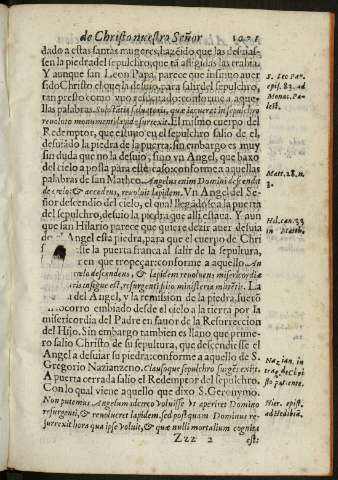 de Christo nuestro Señor 1071
dado a estas santas mugeres, haziẽdo que las desuias-
sen la piedra del sepulchro, que tã afligidas las trahia.
Y aunque san Leon Papa, parece que insinuo auer
sido Christo el que la desuio, para salir del sepulchro,
tan presto como vuo resucitado: conforme a aque-
llas palabras. Substãtia saluatoris, quæ iacuerat in sepulchro
reuoluto monumenti lapide surrexit. El mismo cuerpo del
Redemptor, que estuuo en el sepulchro salio de el,
desuiado la piedra de la puerta: sin embargo es muy
sin duda que no la desuio, sino vn Angel, que baxo
del cielo a posta para este caso: conforme a aquellas
palabras de san Matheo. Angelus enim Domini descendit
de cœlo: & accedens, reuoluit lapidem. Vn Angel del Se-
ñor descendio del cielo, el qual llegãdose a la puerta
del sepulchro, desuio la piedra que alli estaua. Y aun
que san Hilario parece que quiere dezir auer desuia
el Angel esta piedra, para que el cuerpo de Chri
sse la puerta franca al salir de la sepultura,
ren que tropeçar: conforme a aquello An
cœlo descendens, & lapidem reuoluens; misericordiæ
tris insigne est, resurgenti filio ministeria mittẽtis. La
a del Angel, y la remission de la piedra, fuerõ
ocorro embiado desde el cielo a la tierra por la
misericordia del Padre en fauor de la Resurreccion
del Hijo. Sin embargo tambien es llano que prime-
ro salio Christo de su sepultura, que descendiesse el
Angel a desuiar su piedra: conforme a aquello de S.
Gregorio Nazianzeno. Clausoque sepulchro surgẽs exijt.
A puerta cerrada salio el Redemptor del sepulchro.
Con lo qual viene aquello que dixo S. Geronymo.
Non putemus Angelum ideo voluisse vt aperiret Domino
resurgenti, & reuolueret lapidem, sed postquam Dominus re-
surrexit hora qua ipse voluit, & quæ nulli mortalium cognita
Zzz 2 est:
S. Leo Pap.
epist. 83. ad
Monac. Pa-
lest.
Matt. 28. n.
3.
Hil. can. 33
in Matth.
Nazian. in
trag. de Chri
sto patiente.
Hier. epist.
ad Hedibiã.